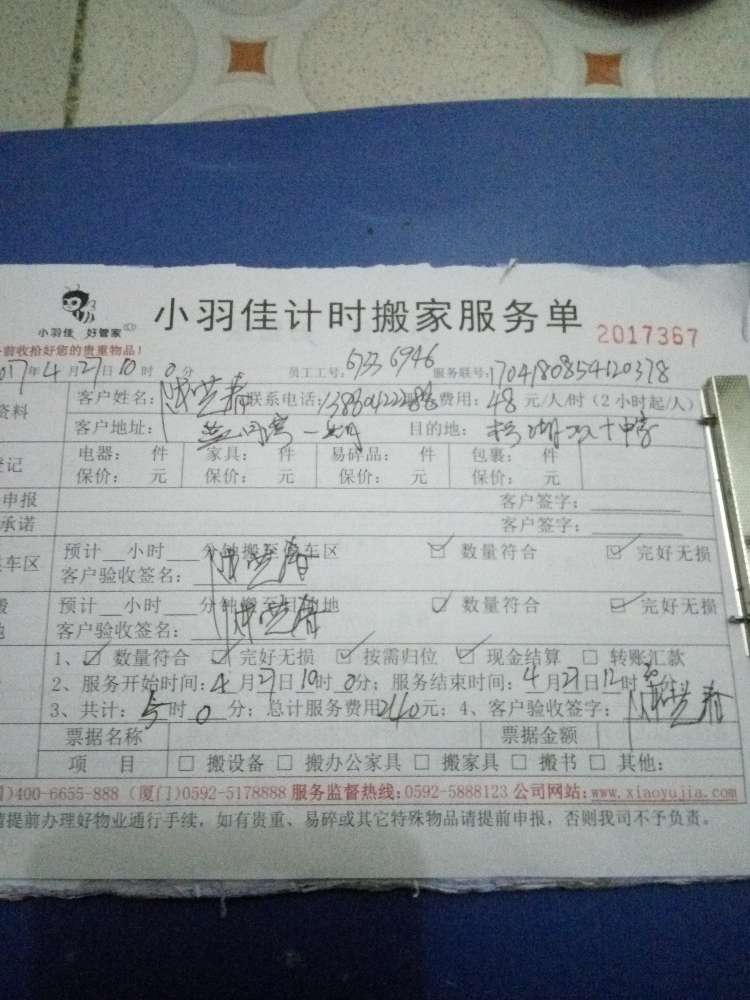 小羽佳 好管家
小羽佳计时搬家服务单
2017367
前收拾好您的贵重物品！
2017年4月27日10时0分 员工工号：6733 6946 服务联号：1704180854120378
资料 客户姓名： 联系电话： 费用：48元/人/时（2小时起/人）
客户地址： 一期 目的地：
登记 电器： 件 家具： 件 易碎品： 件 包裹： 件
保价： 元 保价： 元 保价： 元 保价： 元
申报 客户签字：
承诺 客户签字：
车区 预计 小时 分钟搬至停车区 ☑ 数量符合 ☑ 完好无损
客户验收签名：
预计 小时 分钟搬至目的地 ☑ 数量符合 ☑ 完好无损
客户验收签名：
1、☑ 数量符合 ☑ 完好无损 ☑ 按需归位 ☑ 现金结算 □ 转账汇款
2、服务开始时间：4月27日10时0分；服务结束时间：4月27日12时
3、共计：5时0分；总计服务费用240元；4、客户验收签字：
票据名称 票据金额
项 目 □ 搬设备 □ 搬办公家具 □ 搬家具 □ 搬书 □ 其他：
)400-6655-888 (厦门)0592-5178888 服务监督热线:0592-5888123 公司网站:www.xiaoyujia.com
请提前办理好物业通行手续，如有贵重、易碎或其它特殊物品请提前申报，否则我司不予负责。